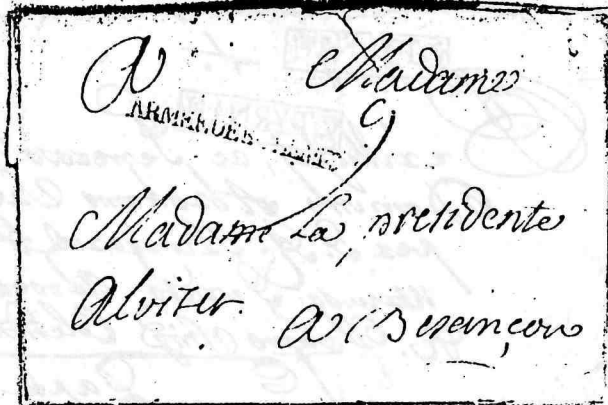 A Madame
ARMEE DE
9
Madame La présidente
Alviset. A Besançon